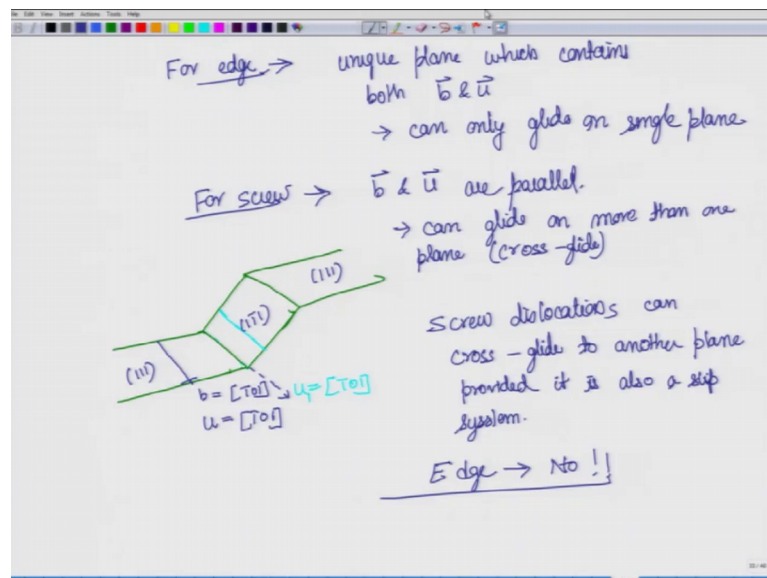 File Edit View Insert Actions Tools Help
For edge → unique plane which contains
both b⃗ & u⃗
→ can only glide on single plane
For screw → b⃗ & u⃗ are parallel.
→ can glide on more than one
plane (cross-glide)
(111)
(11̅1)
(111)
b = [1̅01]
u = [1̅01]
u₁ = [1̅01]
Screw dislocations can
cross-glide to another plane
provided it is also a slip
system.
Edge → No !!